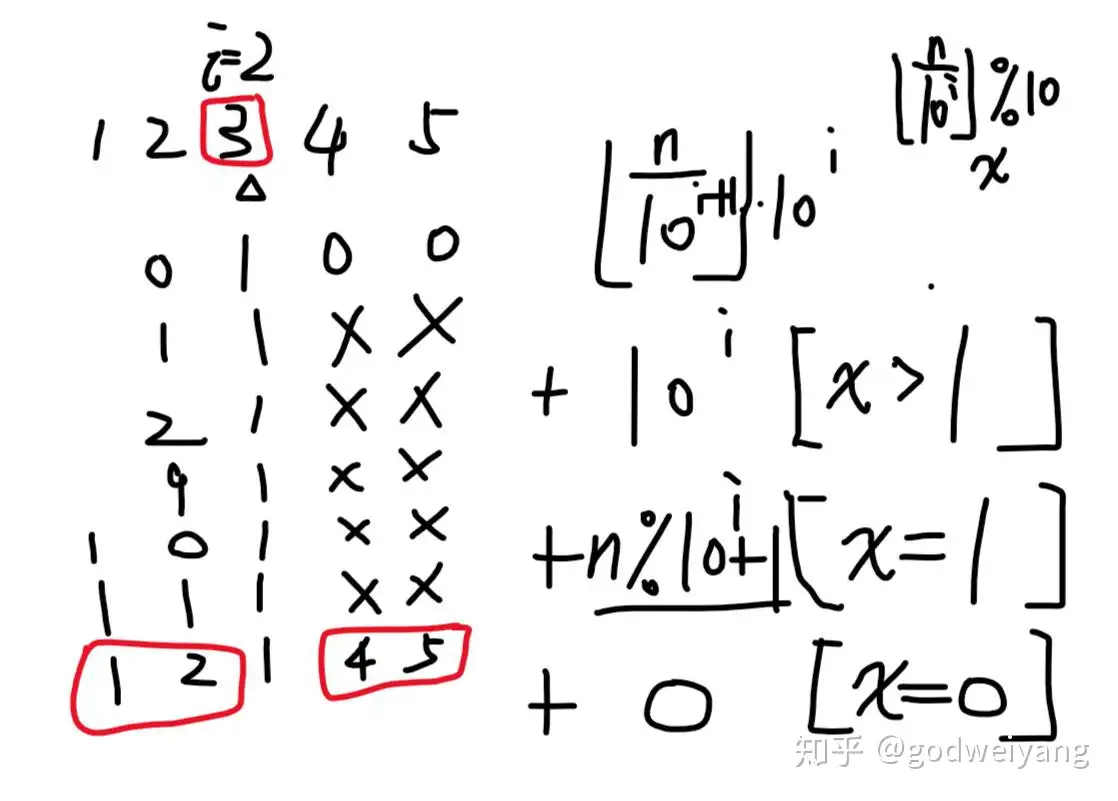 i=2
1 2 3 4 5
△
0 1 0 0
1 1 X X
2 1 X X
9 1 X X
1 0 1 X X
1 1 1 X X
1 2 1 4 5
⌊n/10^i⌋%10
x
⌊n/10^{i+1}⌋·10^i
+ 10^i [x>1]
+n%10^i+1[x=1]
+ 0 [x=0]
知乎 @godweiyang